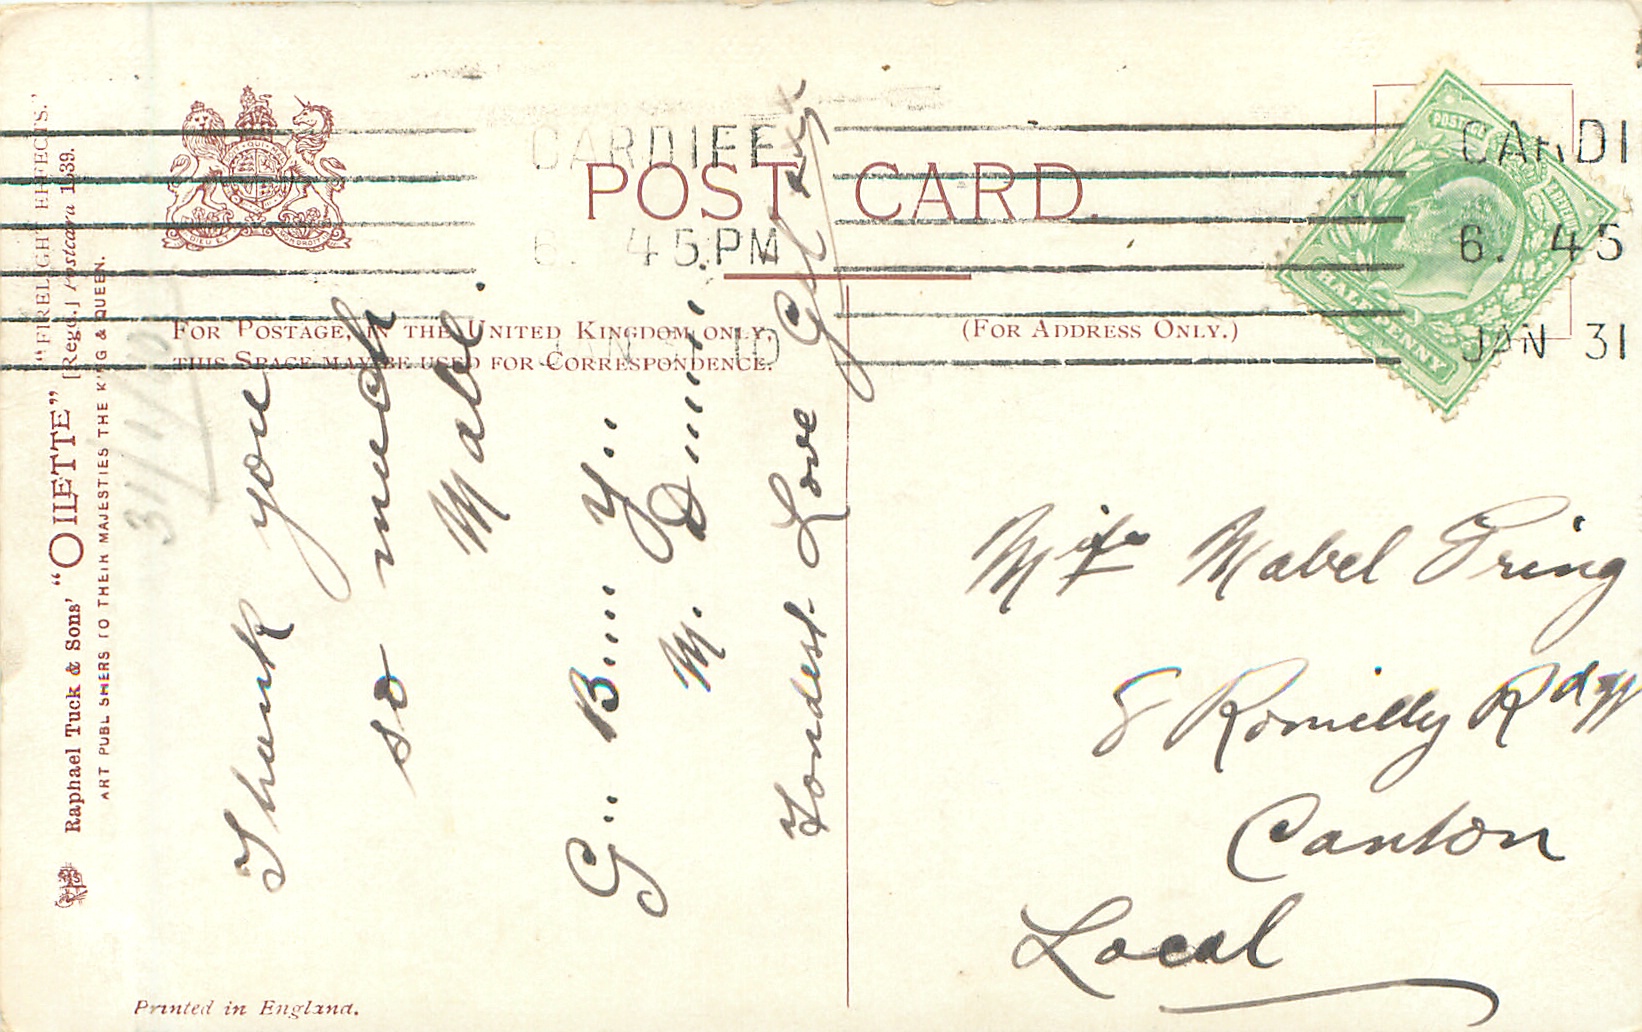 "FIRELIGHT EFFECTS."
Raphael Tuck & Sons' "OILETTE" [Regd.] Postcard 1539.
ART PUBLISHERS TO THEIR MAJESTIES THE KING & QUEEN.
31/1/10
DIEU ET MON DROIT
POST CARD.
CARDIFF
6. 45 PM
JAN 31 10
FOR POSTAGE, IN THE UNITED KINGDOM ONLY,
THIS SPACE MAY BE USED FOR CORRESPONDENCE.
(FOR ADDRESS ONLY.)
POSTAGE
HALFPENNY
CARDI
6. 45
JAN 31
Thank you
so much
Mabel.
G.. B.... Y...
M. D.....
Fondest Love
Miss Mabel Pring
8 Romilly Rd W
Canton
Local
Printed in England.